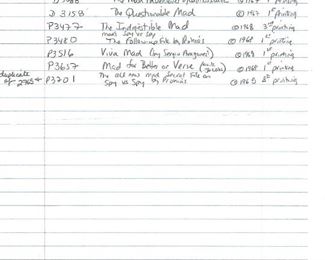 D 3158 The Questionable Mad © 1967 1st printing
P3477 The Indigestible Mad © 1968 3rd printing
mads spy vs spy
P3480 The Following File by Prohias © 1968 1st printing
P3516 Viva Mad (by Sergio Aragones) © 1968 1st printing
P3657 Mad for Better or Verse © 1968 1st printing
duplicate of P3701 The all new mad secret file on Spy vs Spy by Prohias © 1965 8th printing